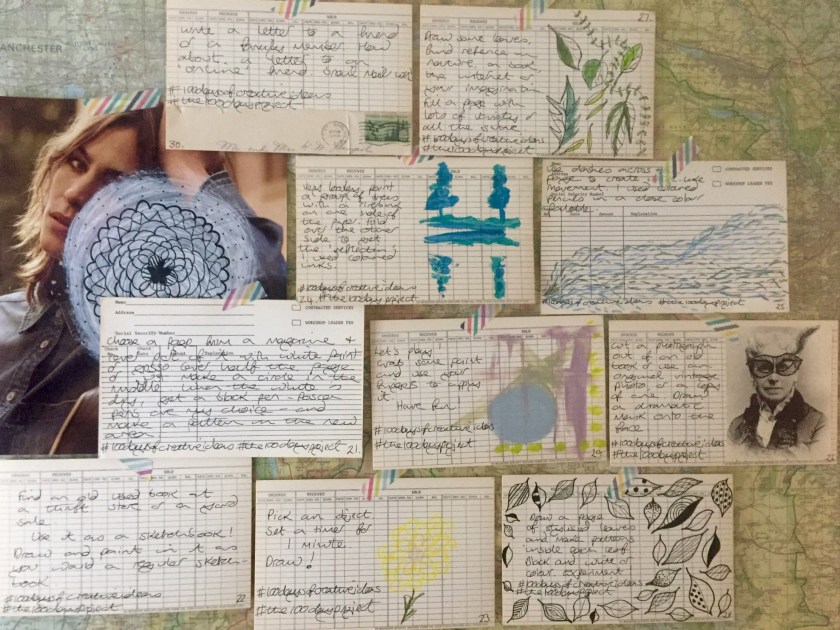 ANCHESTER
write a letter to a friend
or a family member. How
about a letter to an
online friend. Snail mail
#100daysofcreativeideas
#the100dayproject
30.
27.
Draw some leaves,
find reference in
nature, a book,
the internet or
your imagination
fill a page with
lots of variety or
all the same
#100daysofcreativeideas
#the100dayproject
Very loosely paint
a group of trees
with a
on one side of
the paper. Fold
over the other
side to get
the reflection
I used coloured
inks.
#100daysofcreativeideas
24. #the100dayproject
Use dashes across a
page to create
movement. Used coloured
pencils in a close colour
palette.
CONTRACTED SERVICES
WORKSHOP LEADER FEE
#100daysofcreativeideas #the100dayproject
Name
Address
CONTRACTED SERVICES
WORKSHOP LEADER FEE
Social Security Number
Choose a page from a magazine &
with white paint
or gesso cover half the page
or make a circle in the
middle. When the white is
dry, get a black pen - Posca
pens are my choice - and
make a pattern in the new
area
#100daysofcreativeideas #the100dayproject 21.
Let's play
Grab some paint
and use your
fingers to apply
it
Have fun
#100daysofcreativeideas
#the100dayproject
Cut a photograph
out of an old
book or use an
original vintage
photo or a copy
of one. Draw
a dramatic
mask onto the
face
#100daysofcreativeideas
#the100dayproject
Find an old used book at
a thrift store or a yard
sale
Use it as a sketchbook!
Draw and paint in it as
you would a regular sketch-
book
#100daysofcreativeideas
#the100dayproject 22
Pick an object
Set a timer for
1 minute
Draw!
#100daysofcreativeideas
#the100dayproject 23
Draw a page
of stylised leaves
and make patterns
inside each leaf
Black and white or
colour. Experiment
#100daysofcreativeideas
#the100dayproject